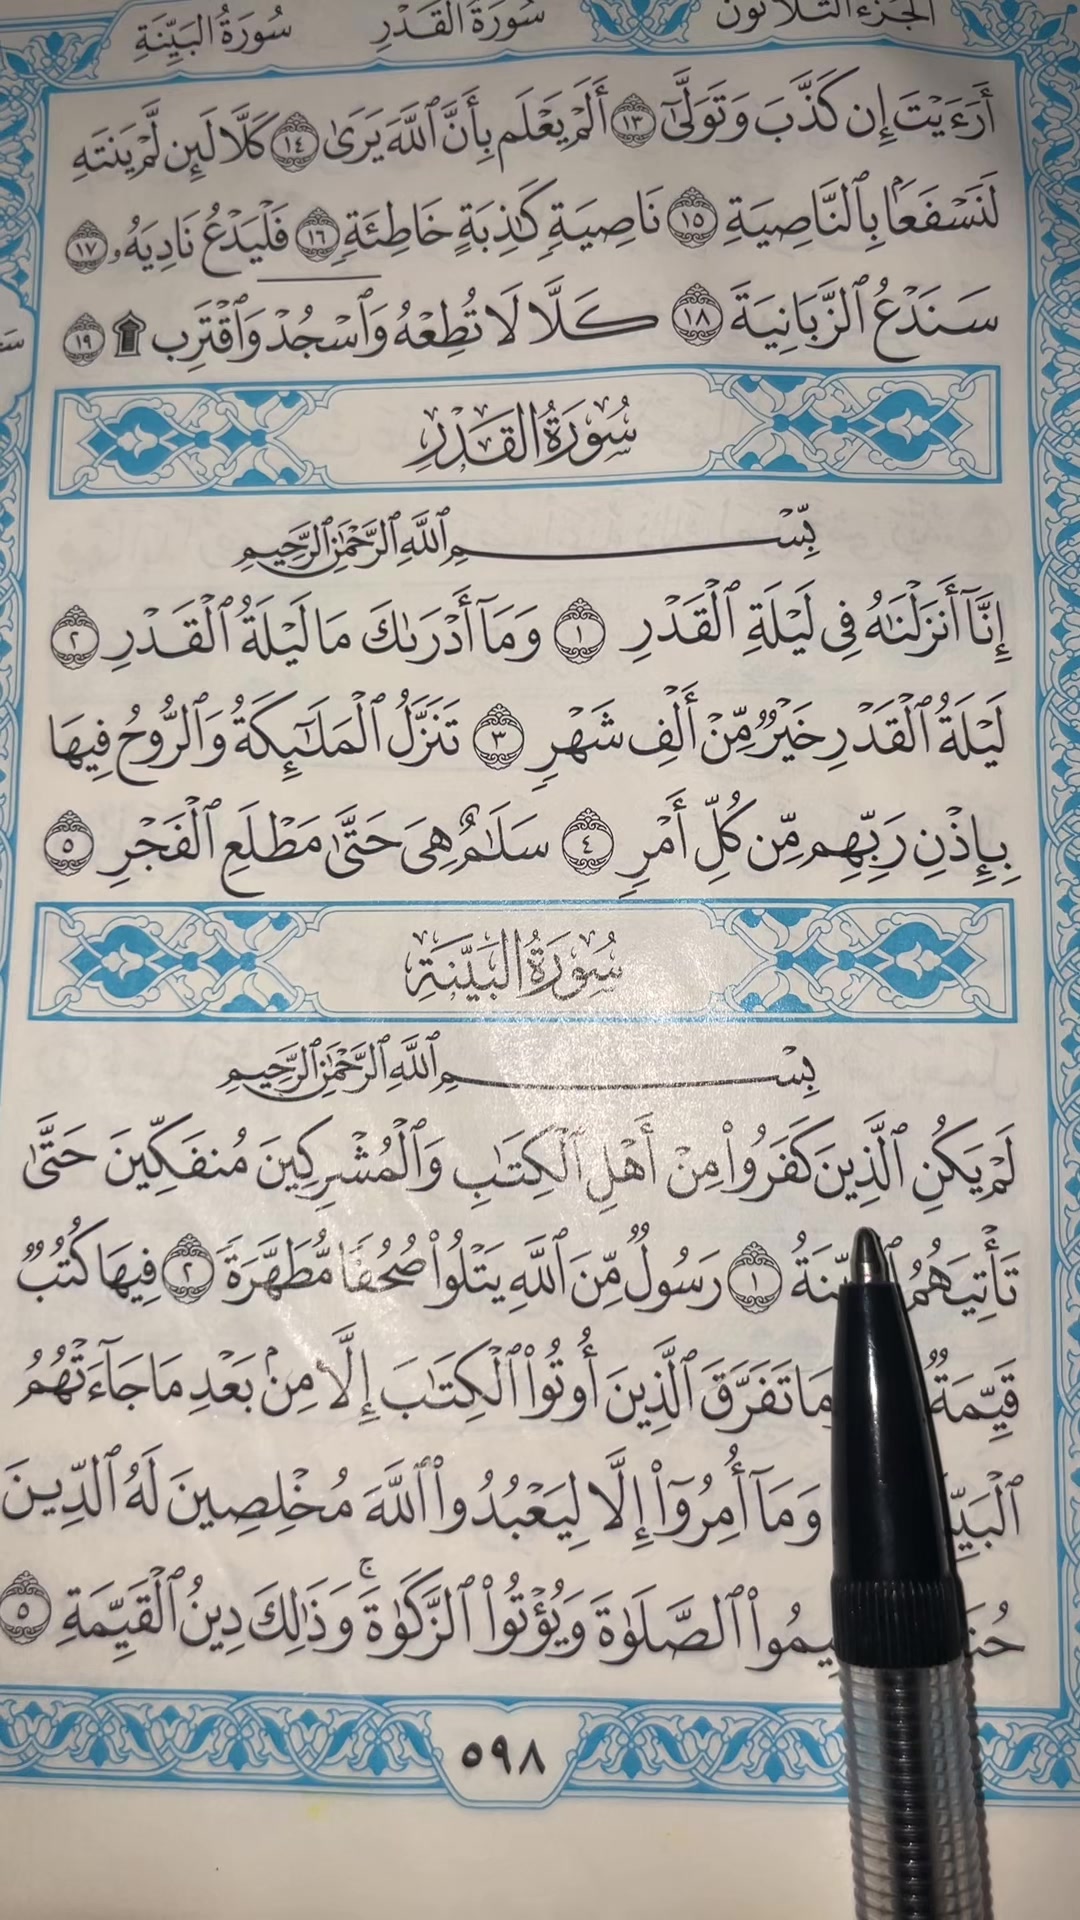 الجزء الثلاثون سورة القدر سورة البينة
أَرَءَيْتَ إِن كَذَّبَ وَتَوَلَّىٰٓ ١٣ أَلَمْ يَعْلَم بِأَنَّ ٱللَّهَ يَرَىٰ ١٤ كَلَّا لَئِن لَّمْ يَنتَهِ
لَنَسْفَعًۢا بِٱلنَّاصِيَةِ ١٥ نَاصِيَةٍ كَٰذِبَةٍ خَاطِئَةٍ ١٦ فَلْيَدْعُ نَادِيَهُۥ ١٧
سَنَدْعُ ٱلزَّبَانِيَةَ ١٨ كَلَّا لَا تُطِعْهُ وَٱسْجُدْ وَٱقْتَرِب ۩ ١٩
سُورَةُ القَدْرِ
بِّسْمِ ٱللَّهِ ٱلرَّحْمَٰنِ ٱلرَّحِيمِ
إِنَّآ أَنزَلْنَٰهُ فِى لَيْلَةِ ٱلْقَدْرِ ١ وَمَآ أَدْرَىٰكَ مَا لَيْلَةُ ٱلْقَدْرِ ٢
لَيْلَةُ ٱلْقَدْرِ خَيْرٌ مِّنْ أَلْفِ شَهْرٍ ٣ تَنَزَّلُ ٱلْمَلَٰٓئِكَةُ وَٱلرُّوحُ فِيهَا
بِإِذْنِ رَبِّهِم مِّن كُلِّ أَمْرٍ ٤ سَلَٰمٌ هِىَ حَتَّىٰ مَطْلَعِ ٱلْفَجْرِ ٥
سُورَةُ البَيِّنَةِ
بِسْمِ ٱللَّهِ ٱلرَّحْمَٰنِ ٱلرَّحِيمِ
لَمْ يَكُنِ ٱلَّذِينَ كَفَرُوا۟ مِنْ أَهْلِ ٱلْكِتَٰبِ وَٱلْمُشْرِكِينَ مُنفَكِّينَ حَتَّىٰ
تَأْتِيَهُمُ ١ رَسُولٌ مِّنَ ٱللَّهِ يَتْلُوا۟ صُحُفًا مُّطَهَّرَةً ٢ فِيهَا كُتُبٌ
قَيِّمَةٌ مَا تَفَرَّقَ ٱلَّذِينَ أُوتُوا۟ ٱلْكِتَٰبَ إِلَّا مِنۢ بَعْدِ مَا جَآءَتْهُمُ
وَمَآ أُمِرُوٓا۟ إِلَّا لِيَعْبُدُوا۟ ٱللَّهَ مُخْلِصِينَ لَهُ ٱلدِّينَ
ٱلصَّلَوٰةَ وَيُؤْتُوا۟ ٱلزَّكَوٰةَ ۚ وَذَٰلِكَ دِينُ ٱلْقَيِّمَةِ ٥
٥٩٨